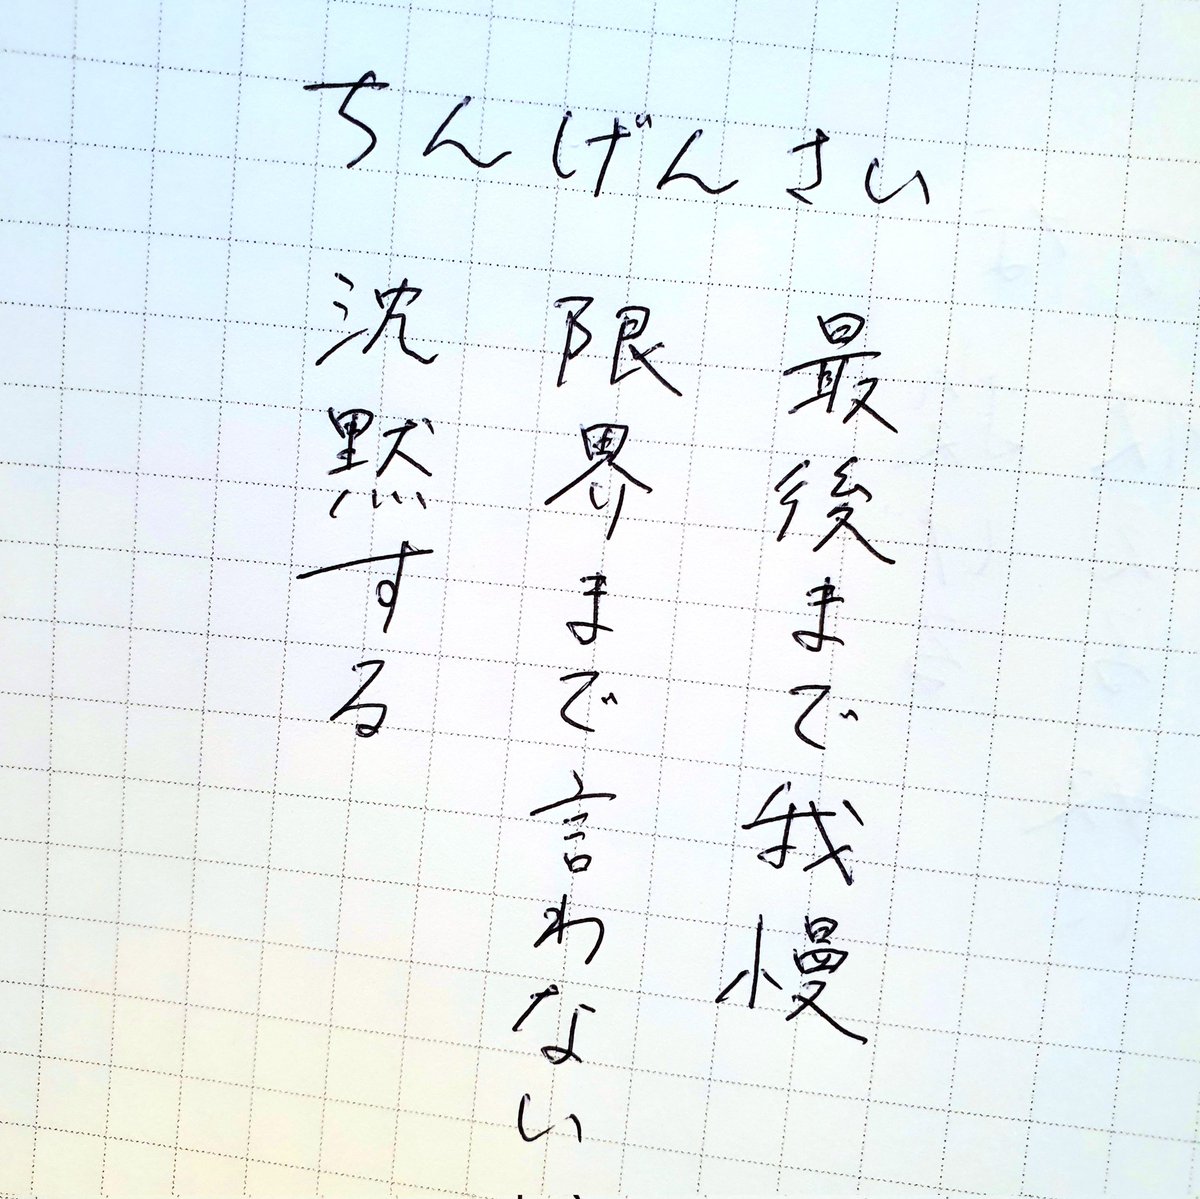 ちんげんさい
沈黙する
限界まで言わない
最後まで我慢